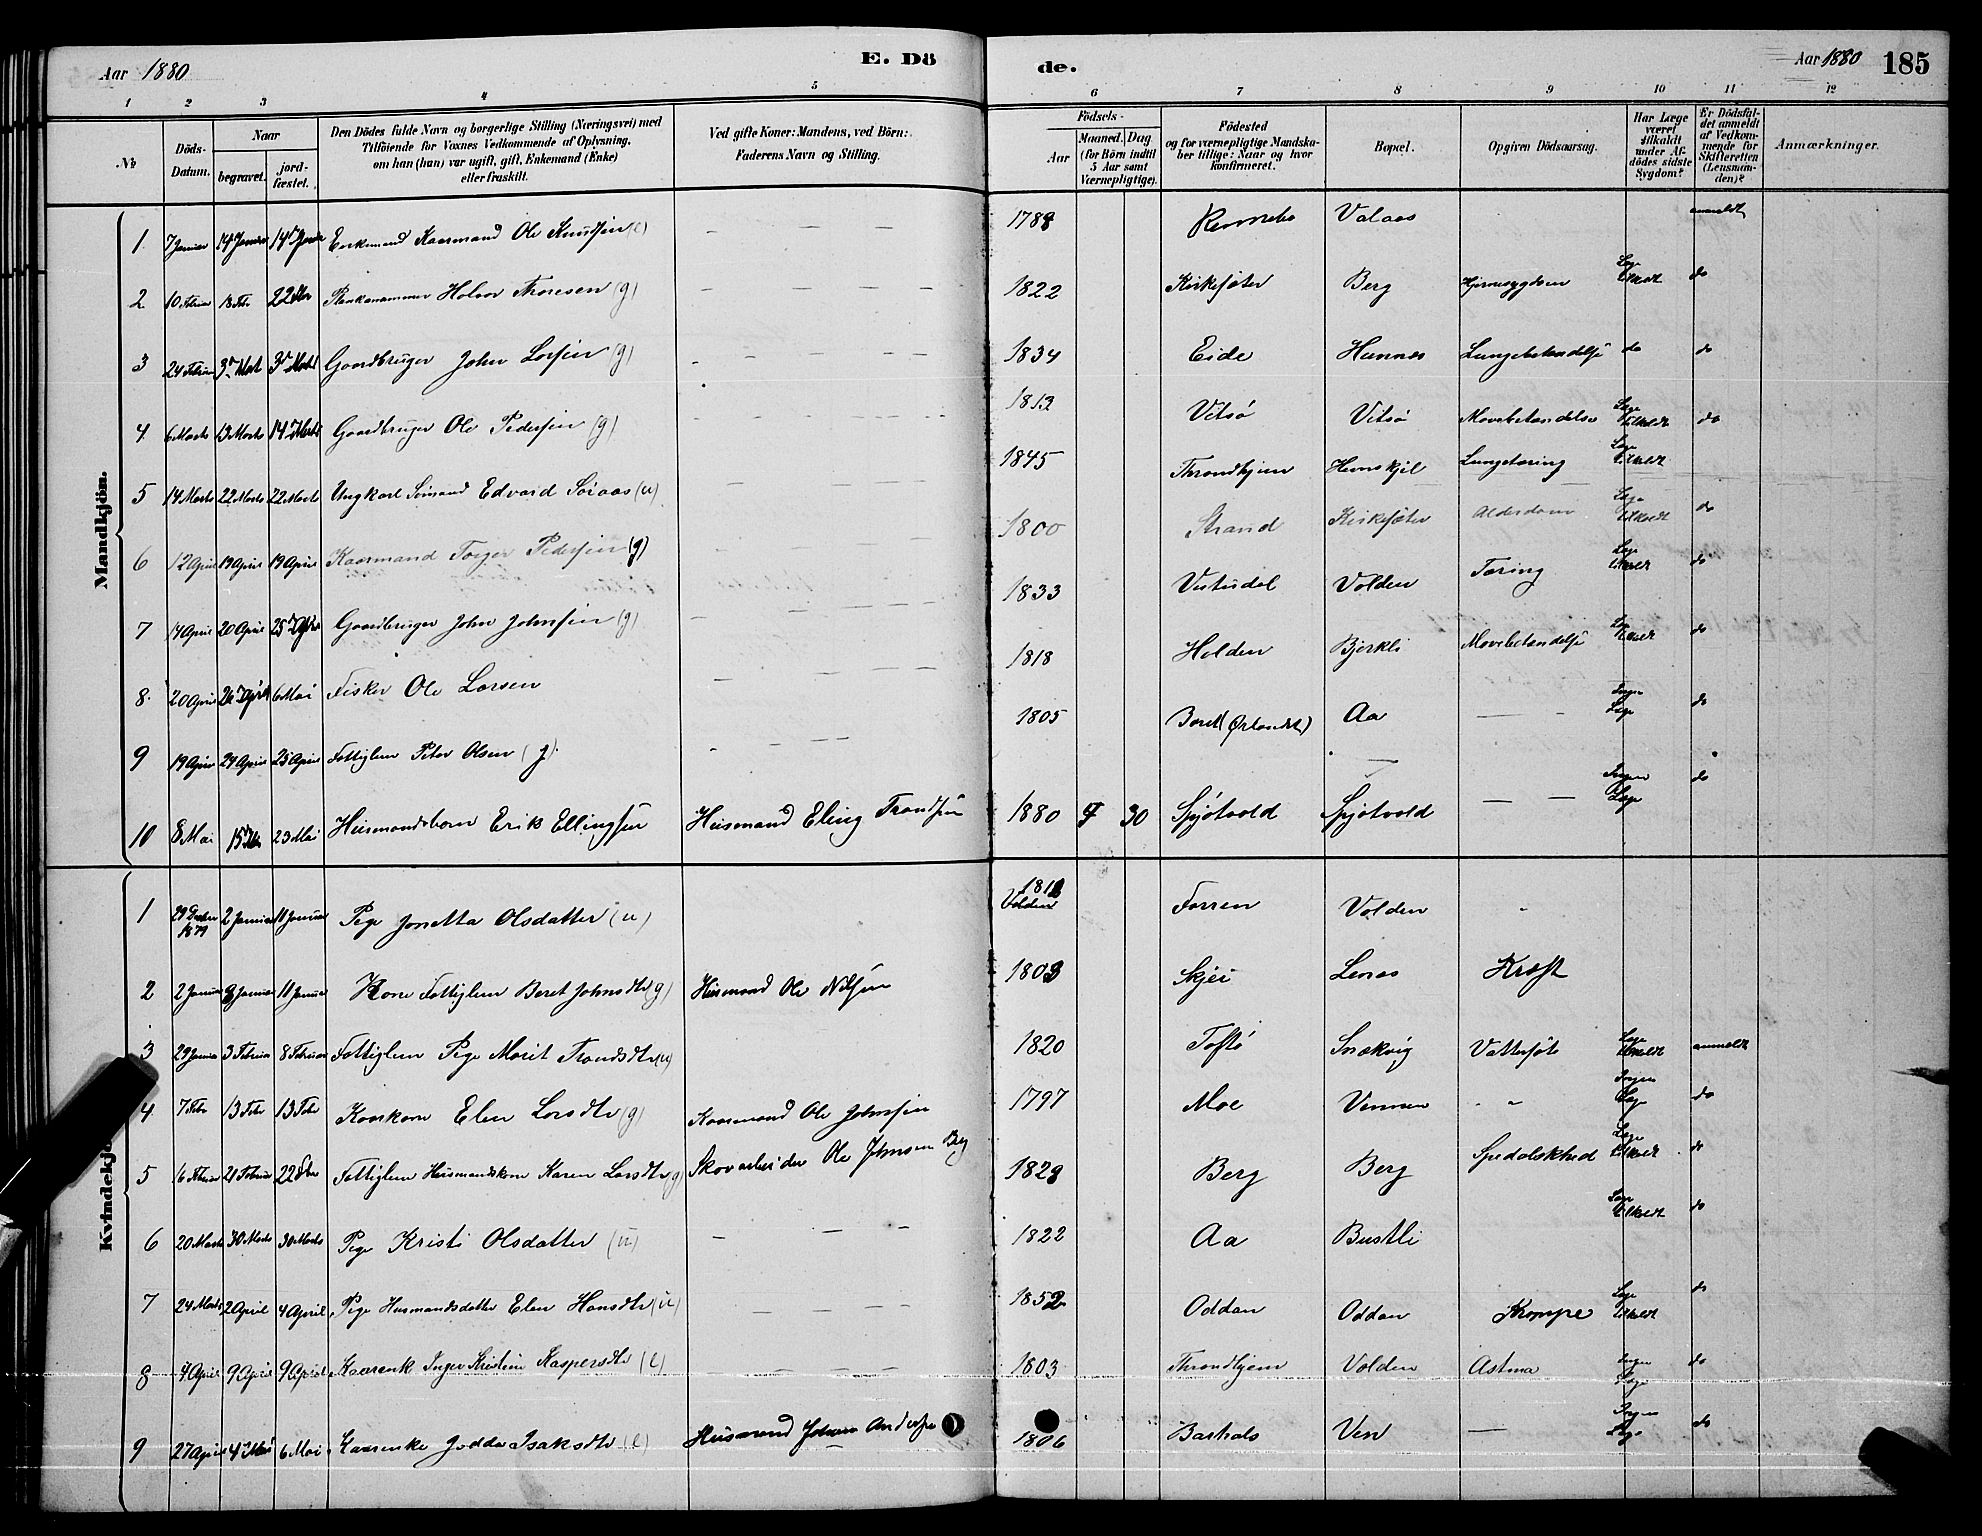 Aar 1880
E. Dö
de.
Aar 1880 185
1 2 3 4 5 6 7 8 9 10 11 12
No
Döds-Datum.
Naar
begravet.
jord-fæstet.
Den Dödes fulde Navn og borgerlige Stilling (Næringsvei) med
Tilföiende for Voxnes Vedkommende af Oplysning,
om han (hun) var ugift, gift, Enkemand (Enke)
eller fraskilt.
Ved gifte Koner: Mandens, ved Börn:
Faderens Navn og Stilling.
Födsels-
Aar
Maaned. Dag
(for Börn indtil
5 Aar samt
Værnepligtige).
Födested
og for værnepligtige Mandska-
ber tillige: Naar og hvor
konfirmeret.
Bopæl.
Opgiven Dödsaarsag.
Har Læge
været
tilkaldt
under Af-
dödes sidste
Sygdom?
Er Dödsfal-
det anmeldt
af Vedkom-
mende for
Skifteretten
(Lensman-
den)?
Anmærkninger.
Mandkjön.
1 7 Januar 14 Januar Enkemand Kaarmand Ole Knudsen (e) — — — Rennebo Valaas anmeldt
2 10 Februar 18 Febr 22 Febr Halvor Thoresen (g) — — — 1822 Kirkesæter Berg Hjernesygdom Læge tilkaldt do
3 24 Februar 3 Marts Gaardbruger John Larsen (g) — — — 1834 Eide Hamnes Lungebetændelse do do
4 6 Marts 13 Marts 14 Marts Gaardbruger Ole Pedersen (g) — — — 1813 Vitsø Vitsø Mavebetændelse Læge tilkaldt do
5 14 Marts 22 Marts 22 Marts Ungkarl Sömand Edvard Söraas (u) — — — 1845 Throndhjem Hevnskjel Lungetæring Læge tilkaldt
6 12 April 19 April 19 April Kaarmand Torger Pedersen (g) — — — 1800 Strand Kirkesæter Alderdom Læge tilkaldt do
7 14 April 20 April 25 April Gaardbruger John Johnsen (g) — — — 1833 Vutudal Volden Tæring Læge tilkaldt do
8 20 April 26 April 6 Mai Fisker Ole Larsen — — — 1818 Holden Bjerkli Mavebetændelse Læge tilkaldt do
9 19 April 24 April 25 April Fattiglem Peter Olsen (g) — — — 1805 (Ørlandet) Aa — — Ingen Læge do
10 8 Mai 23 Mai Husmandsbarn Erik Ellingsen Husmand Eling Trondsen 1880 4 30 Spjøtvold Spjøtvold — — Ingen Læge do
Kvindekjön.
1 29 1879 2 Januar 11 Januar Pige Jonetta Olsdatter (u) Volden Forren Volden
2 2 Januar 8 Januar 11 Januar Kone Fattiglem Beret Johnsdtr (g) Husmand Ole Nilsen 1803 Skjei Lenes Kræft
3 29 Januar 3 Februar 8 Februar Fattiglem Pige Marit Trondsdtr (u) 1820 Toftö Snekvig Vattersot Læge tilkaldt anmeldt
4 7 Febr 13 Febr 13 Febr Kaarkone Elen Larsdtr (g) Kaarmand Ole Johnsen 1797 Moe Vennen Ingen Læge do
5 16 Februar 21 Februar 22 Febr Fattiglem Husmandskone Karen Larsdtr (g) Skovarbeider Ole Johnsen Berg 1828 Berg Berg Spedalskhed Læge tilkaldt do
6 20 Marts 30 Marts 30 Marts Pige Kristi Olsdatter (u) — — — 1822 Aa Bustli Læge tilkaldt do
7 24 Marts 2 April 4 April Pige Husmandsdatter Elen Hansdtr (u) — — — 1852 Oddan Oddan Krampe Læge tilkaldt do
8 4 April 9 April 9 April Kaarenk Inger Kristine Kaspersdtr (e) — — — 1803 Throndhjem Volden Astma Ingen Læge do
9 27 April 4 Mai 6 Mai Kaarenke Isaksdtr (e) Husmand Johan Andersen 1806 Barhals Ven — Ingen Læge do